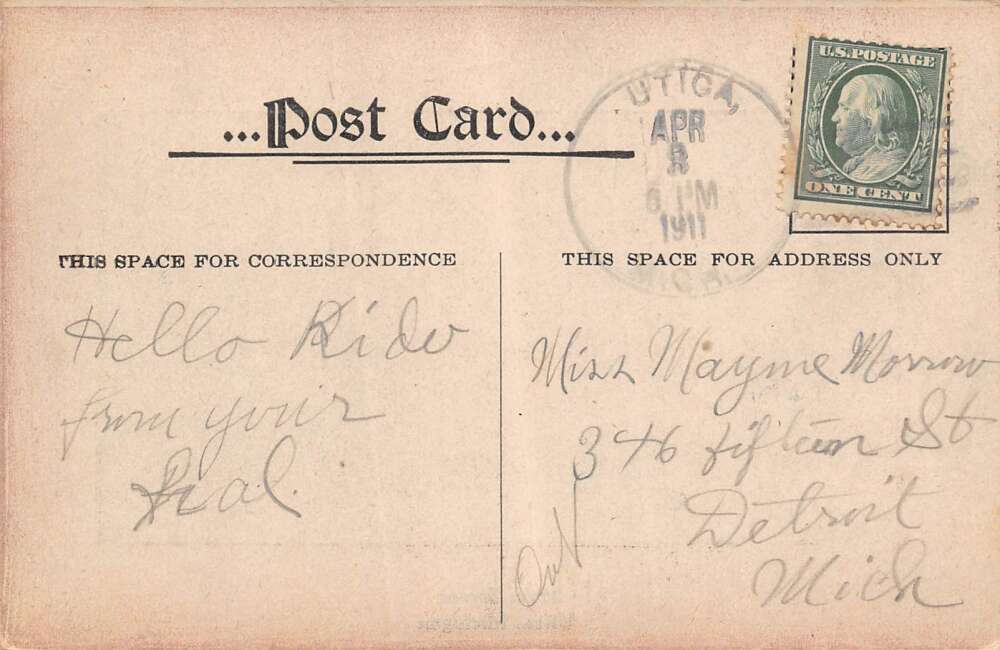 ...Post Card...
UTICA,
APR
8
6 PM
1911
MICH.
U.S.POSTAGE
ONE CENT
THIS SPACE FOR CORRESPONDENCE
Hello Kido
from your
Pal.
THIS SPACE FOR ADDRESS ONLY
Miss Mayme Morrow
346 fifteen St
Detroit
Mich